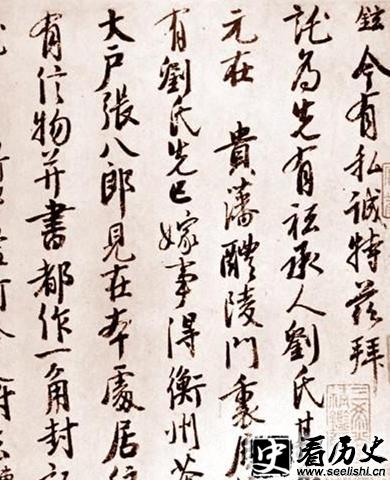 鉉今有私誠特茲拜
託為先有祗承人劉氏其
元在 貴藩醴陵門裏居
有劉氏先已嫁事得衡州茶
大户張八郎見在本處居住
有信物并書都作一角封記
看历史
www.seelishi.cn